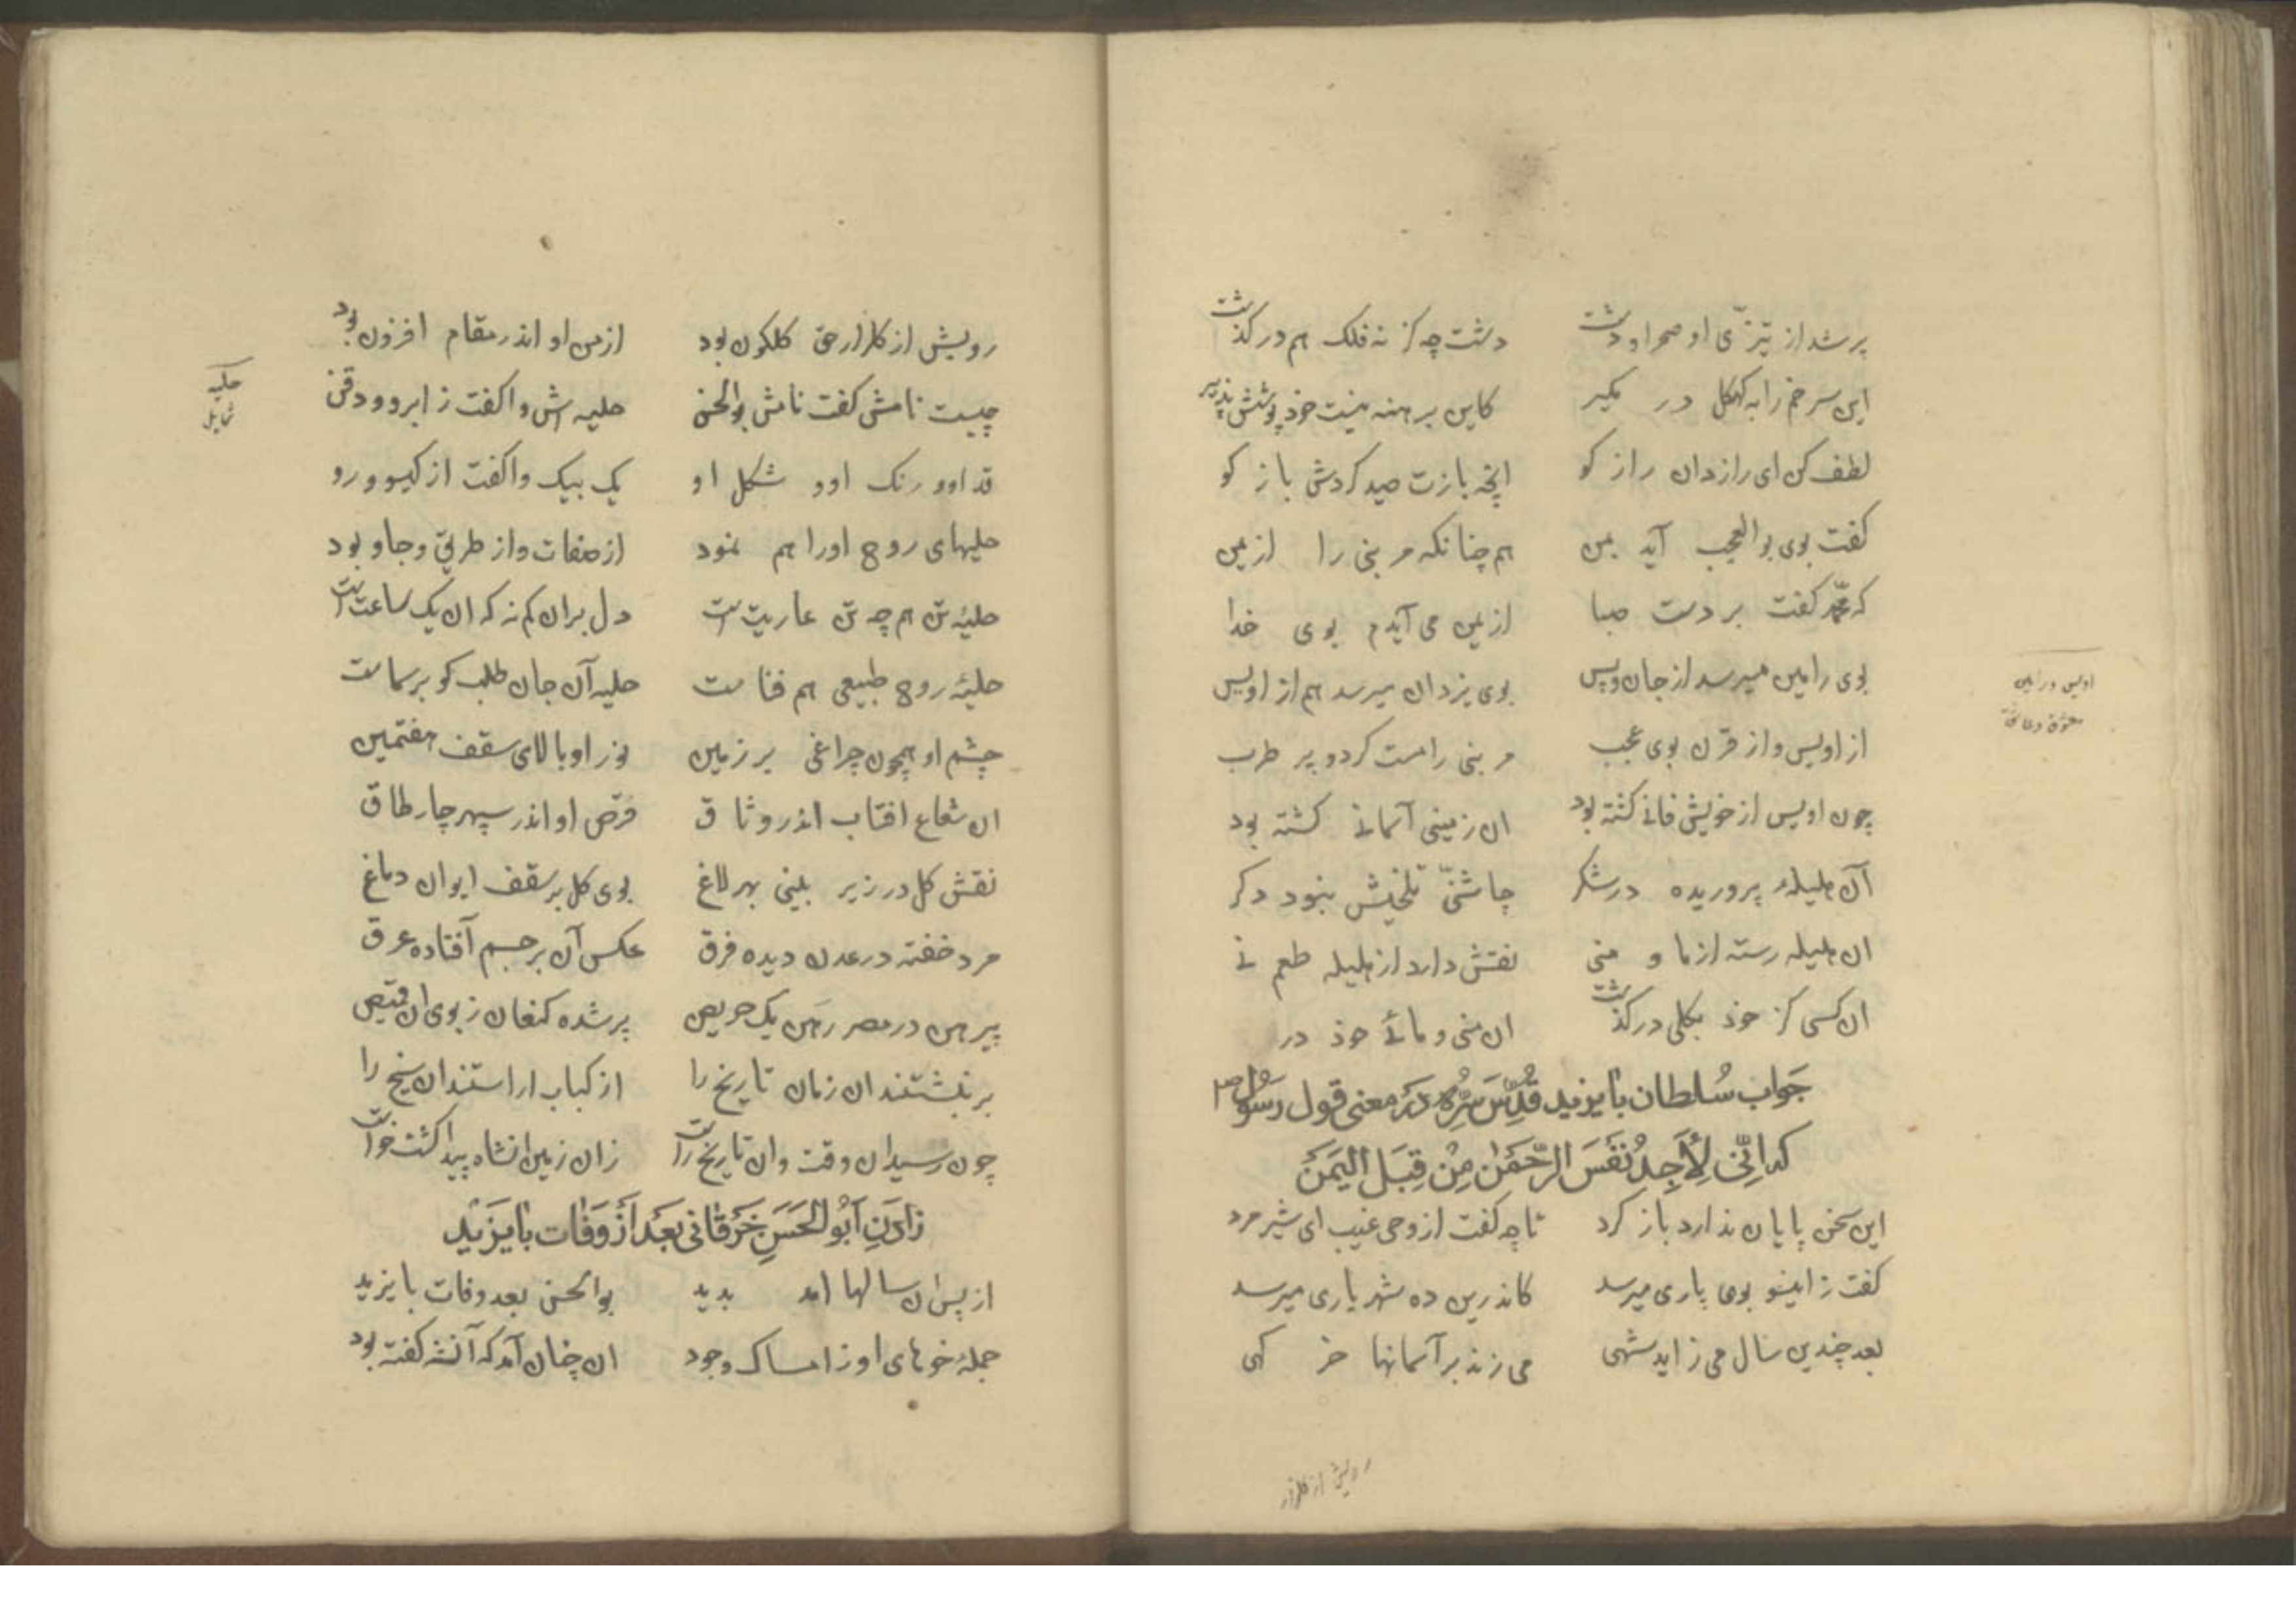 پر شد از تیزّی او صحرا و دشت دشت چه کز نه فلک هم در کذشت
این سر خم را به کهکل در مکیر کاین برهنه نیست خوذ پوشش پذیر
لطف کن ای رازدان راز کو انچه بازت صید کردش باز کو
کفت بوی بوالعجب آید بمن هم چنانکه مر نبی را از یمن
که محمّد کفت بر دست صبا از یمن می آیدم بوی خدا
بوی رامین میرسد از جان ویس بوی یزدان میرسد هم از اویس
از اویس و از قرن بوی عجب مر نبی را مست کرد و پر طرب
چون اویس از خویش فانی کشته بود ان زمینی آسمانی کشته بود
آن هلیلهٔ پروریده در شکر چاشنیّ تلخیش نبود دکر
ان هلیله رسته از ما و منی نقش دارد از هلیله طعم نی
ان کسی کز خوذ بکلی در کذشت ان منی و مائی خوذ در
اویس و رامین
معشوق و عاشق
جَواب سُلطان بایزید قُدِّسَ سِّرُه در معنی قول رَسوُل صم
که اِنّی لَأَجِدُ نَفَسَ الرَّحمٰنِ مِنْ قِبَلِ الیَمَن
این سخن پایان نذارد باز کرد تا چه کفت از وحی غیب ای شیر مرد
کفت زاینسو بوی یاری میرسد کاندرین ده شهریاری میرسد
بعد چندین سال می زاید شهی می زند بر آسمانها خر کهی
رویش از کلزار
رویش از کلزار حق کلکون بود از من او اندر مقام افزون بود
چیست نامش کفت نامش بوالحسن حلیه اش واکفت ز ابرو و ذقن
حلیه
شمایل
قد او و رنک او و شکل او یک بیک واکفت از کیسو و رو
حلیهای روح او را هم نمود از صفات و از طریق و جا و بود
حلیهٔ تن هم چه تن عاریتیست دل بران کم نه که ان یک ساعتیست
حلیهٔ روح طبیعی هم فناست حلیه آن جان طلب کو بر سماست
جسم او همچون چراغی بر زمین نور او بالای سقف هفتمین
ان شعاع افتاب اندر وثاق قرص او اندر سپهر چار طاق
نقش کل در زیر بینی بهر لاغ بوی کل بر سقف ایوان دماغ
مرد خفته در عدن دیده فرق عکس آن بر جسم آفتاده عرق
پیرهن در مصر رهن یک حریص پر شده کنعان ز بوی ان قمیص
بر نبشتند ان زمان تاریخ را از کباب اراستند ان سیخ را
چون رسید ان وقت و ان تاریخ راست زان زمین انشاه پیدا کشت خواست
زادَنِ اَبُو الحَسَنِ خَرَقانی بَعد از وَفات بایَزید
از پس ان سالها امد بدید بوالحسن بعد وفات بایزید
جملهٔ خوهای او ز امساک وجود ان چنان آمد که آنشه کفته بود